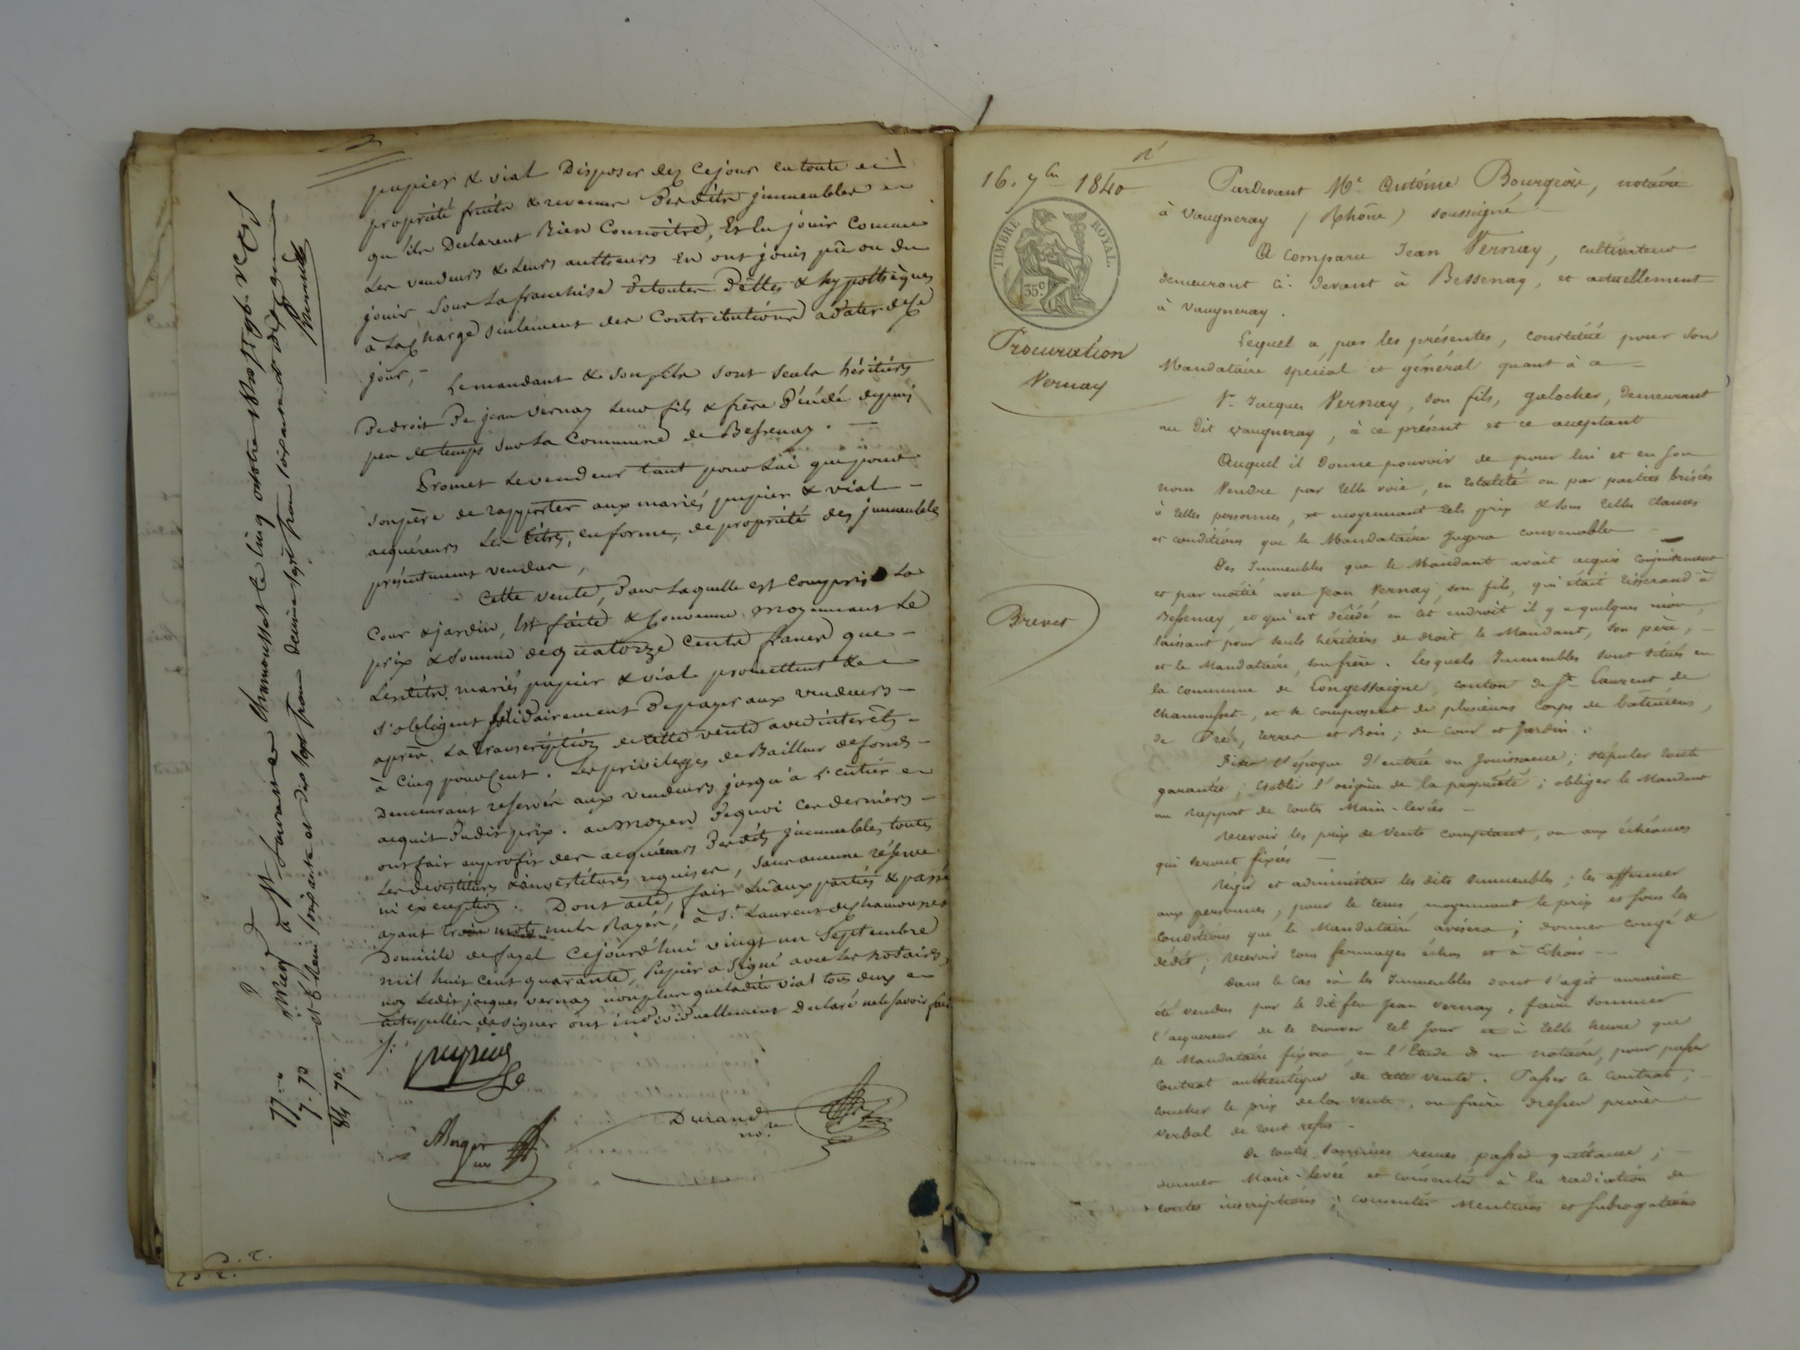 pupier & vial Disposer dez ce jour en toute
propriété fruits & revenus Desdits jmmeubles
qu'ils Declarent Bien Connoitre, Et En jouir Comme
Les vendeurs & Leurs autheurs En ont joui pû ou du
jouir, Sous La franchise detoutes Dettes & hypothèques
à La charge seulement des Contributions adater dece
jour,-
Le mandant & son fils sont seuls héritiers
De droit De jean vernay Leur fils & frère Décédé depuis
peu de temps sur La Commune de Bessenay. -
Promet Le vendeur tant pour Lui que pour
son père de rapporter aux mariés pupier & vial -
acquéreurs Les titres, en forme, de propriété des jmmeubles
présentement vendus,
Cette vente, Dans Laquelle est Comprise La
Cour & jardin, Est faite & Convenue moyennant Le
prix & Somme de quatorze Cents francs que -
Lesdits mariés pupier & vial promettent &
s'obligent solidairement De payer aux vendeurs -
après La transcription de cette vente avec interêts -
à Cinq pour Cent. Les privilèges de Bailleur de fonds -
Demeurant reservés aux vendeurs jusqu'à l'entier
acquit Dudit prix. au moyen De quoi Ces derniers -
ont fait au profit des acquéreurs Desdits jmmeubles, toutes
Les devestitures & investitures requises, sans aucune réserve
ni exception. Dont acte, fait Lu aux parties & passé
ayant trois mots nuls Rayés, à St Laurent de Chamousset
Domicile de Cejourd'hui vingt un Septembre
mil huit cent quarante, Pupier a Signé avec les notaires,
non Ledit jacques vernay non plus que ladite vial tous deux
interpellés de signer ont individuellement Declaré ne le savoir faire
pupier
Durand
nore
à St Laurent de Chamousset le cinq octobre 1840
77.
7. 70
84 70
16. 7bre 1840
TIMBRE ROYAL
35c
Procuration
Vernay
Brevet
Pardevant Me Antoine Bourgeois, notaire
à Vaugneray (Rhône) soussigné
A comparu Jean Vernay, cultivateur
demeurant ci-devant à Bessenay, et actuellement
à Vaugneray.
Lequel a par les présentes, constitué pour son
Mandataire spécial et général quant à ce =
Sr Jacques Vernay, son fils, galocher, demeurant
au dit Vaugneray, à ce présent et ce acceptant
Auquel il donne pouvoir de pour lui et en son
nom Vendre par telle voie, en totalité ou par parties brisées
à telles personnes, et moyennant tels prix & sous telles clauses
et conditions que le Mandataire Jugera convenables -
Des Immeubles que le Mandant avait acquis conjointement
et par moitié avec Jean Vernay, son fils, qui était tisserand à
Bessenay et qui est décédé en cet endroit il y a quelques mois,
laissant pour seuls héritiers de droit le Mandant, son père, -
et le Mandataire, son frère. Lesquels Immeubles sont situés en
la commune de Longessaigne, canton de St Laurent de
Chamousset, et se composent de plusieurs Corps de bâtiments,
de Pré, terres et Bois; de cour et Jardin.
Fixer l'époque d'entrée en Jouissance; stipuler toute
garantie; établir l'origine de la propriété; obliger le Mandant
au rapport de toutes Main-levées -
Recevoir les prix de Vente comptant, ou aux échéances
qui seront fixées -
Régir et administrer les dits Immeubles; les affermer
aux personnes, pour le tems, moyennant le prix et sous les
conditions que le Mandataire avisera; donner congé &
dédit; recevoir tous fermages échus et à Echoir -
Dans le cas où les Immeubles dont s'agit auraient
été vendus par le dit feu Jean Vernay, faire sommer
l'acquereur de se trouver tel Jour et à telle heure que
le Mandataire fixera en l'Etude d'un notaire, pour passer
contrat authentique de cette vente. Passer le contrat;
toucher le prix de la vente, ou faire dresser procès
verbal de tout refus -
De toutes sommes reçues passer quittance; -
donner Main-levée et consentir à la radiation de
toutes inscriptions; consentir Mentions et subrogations